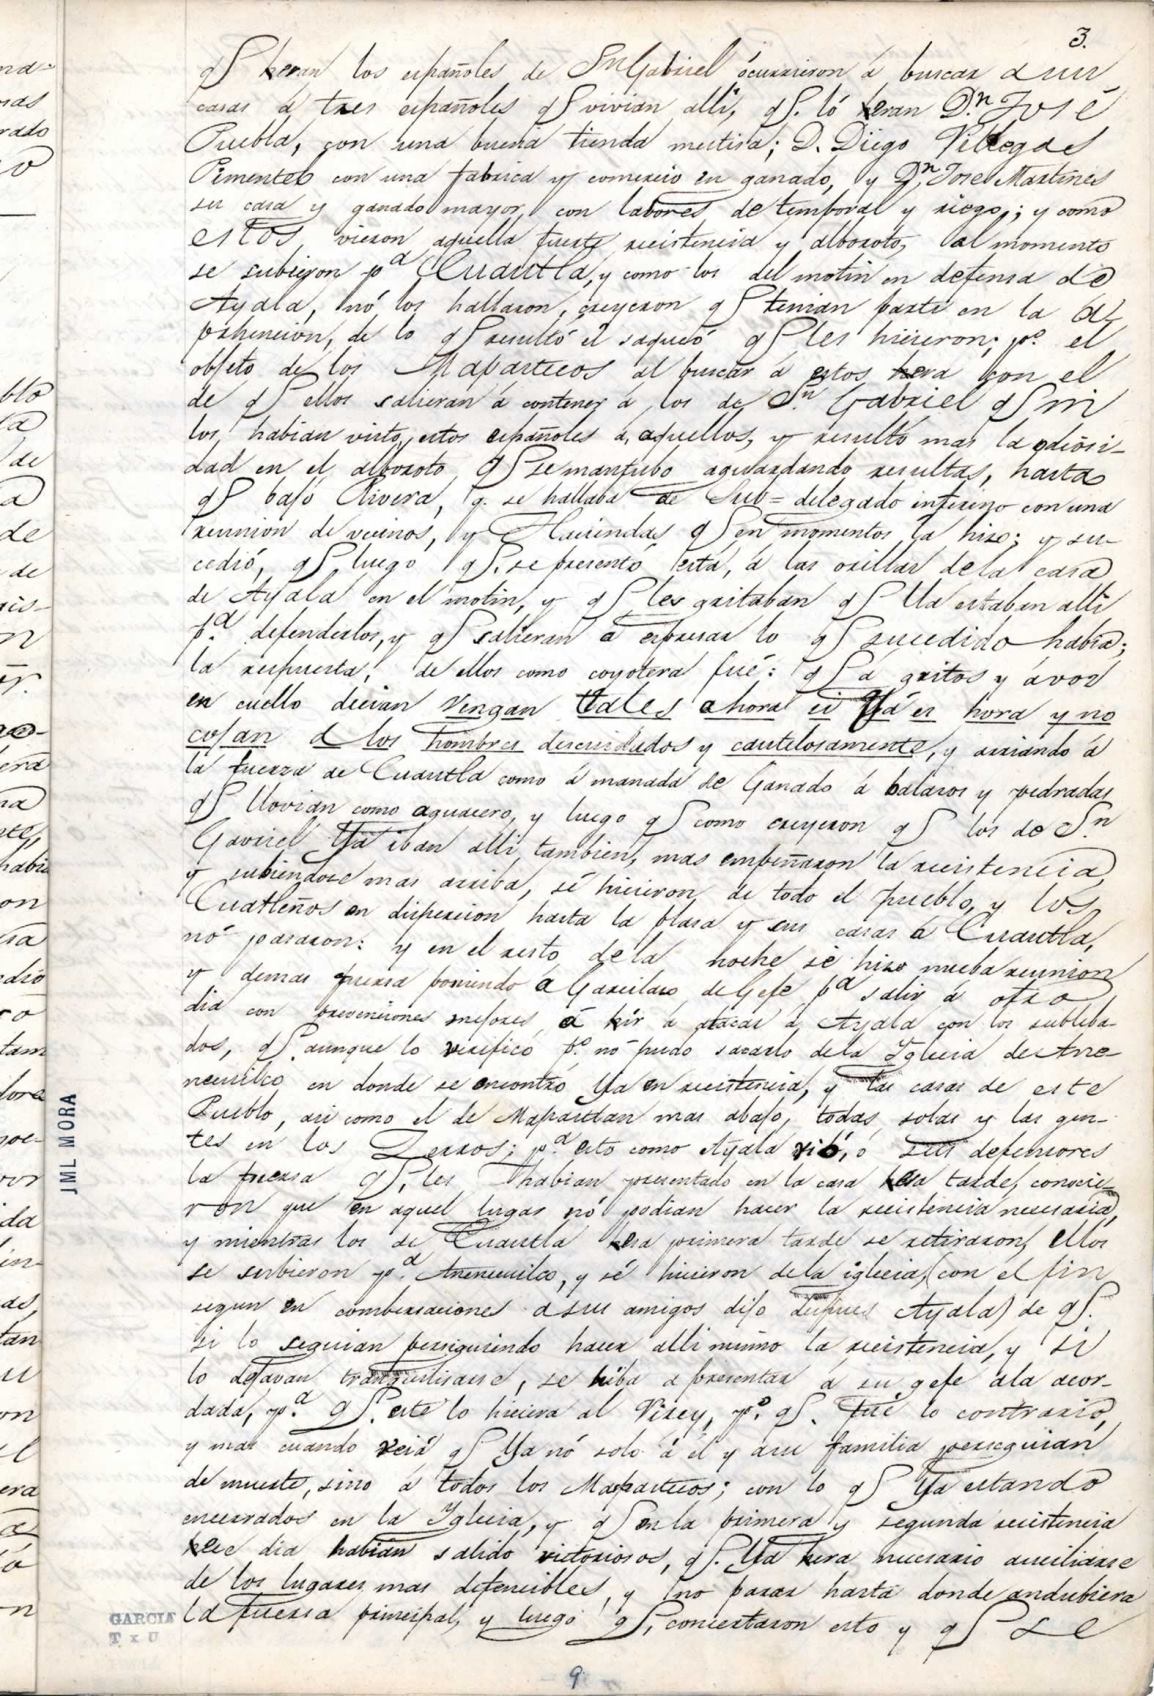 3.
qS heran los españoles de Sn Gabriel ócurrieron á buscar a sus
casas á tres españoles qS vivian alli, qS. ló heran Dn José
Puebla, con una buena tienda mestisa; D. Diego Villegas
Pimentel con una fabrica y comercio en ganado, y Dn Jose Martines
su casa y ganado mayor, con labores de temporal y riego,; y como
estos, vieron aquella fuerte recistencia y alboroto, al momento
se subieron pa Cuautla, y como los del motin en defensa de
Ayala, nó los hallaron, creyeron qS tenian parte en la a-
prhencion, de lo qS resultó el saqueó qS les hicieron; po el
objeto de los Mapastecos al buscar á estos hera con el
de qS ellos salieran á contener á los de Sn Gabriel qS ni
los, habian visto, estos españoles á, aquellos, y resultó mas la odiosi-
dad en el alboroto, qS se mantubo aguardando resultas, hasta
qS bajo Rivera, q. se hallaba de Sub=delegado interino con una
reunion de vecinos, y Haciendas qS en momentos la hizo; y su-
cedió, qS. luego qS. se presentó esta, á las orillas de la casa
de Ayala en el motin, y qS les gritaban qS Ya estaben alli
pa. defenderlos, y qS salieran á espresar lo qS sucedido habia;
la respuesta, de ellos como coyotera fué: qS á gritos y ávoz
en cuello decian vengan tales ahora si Yá es hora y no
cojan a los hombres descuidados y cautelosamente, y arriando á
la fuerza de Cuautla como á manada de Ganado á balazos y pedradas
qS llovian como aguacero, y luego qS como creyeron qS los de Sn
Gavriel Ya iban alli, tambien, mas empeñaron la recistencia,
y subiendose mas arriba, sé hicieron de todo el pueblo, y los
Cuatleños en dispercion hasta la plasa y sus casas á Cuautla,
nó pararon: y en el resto de la noche sé hizo nueba reunion
y demas fuersa poniendo á Garcilaso de Gefe pa salir á otro
dia con prevenciones mejores, á hir á atacar á Ayala con los subleba-
dos, qS. aunque lo verificó po. nó pudo sacarlo de la Yglecia de Ane-
necuilco en donde se encontró Ya en recistencia, y las casas de este
Pueblo, asi como el de Mapastlan mas abajo, todas solas y las gen-
tes en los Zerros; pa. esto como Ayala vió, ó sus defensores
la fuersa qS, les habian presentado en la casa hesa tarde, conocie-
ron que en aquel lugar nó podian hacer la recistencia necesaria,
y mientras los de Cuautla hesa primera tarde se retiraron, ellos
se subieron pa. Anenecuilco, y sé hicieron de la iglecia, (con el fin
segun en combersaciones a sus amigos dijo despues Ayala) de qS.
si lo seguian persiguiendo hacer alli mismo la recistencia, y si
lo dejavan tranquilisarse, se hiba a presentar á su gefe ala acor-
dada, pa. qS. este lo hiciera al Virey, po. qS. fué lo contrario,
y mas cuando veiá qS Ya nó solo á él y ásu familia perseguian
de muerte, sino á todos los Mapastecos; con lo qS Ya estando
encerrados en la Yglecia, y qS en la primera y segunda recistencia
hese dia habian salido victoriosos, qS. Ya hera necesario auciliarse
de los lugares mas defencibles, y no parar hasta donde andubiera
la fuersa principal, y luego qS, concertaron esto y qS se
JML MORA
GARCIA
T x U
9